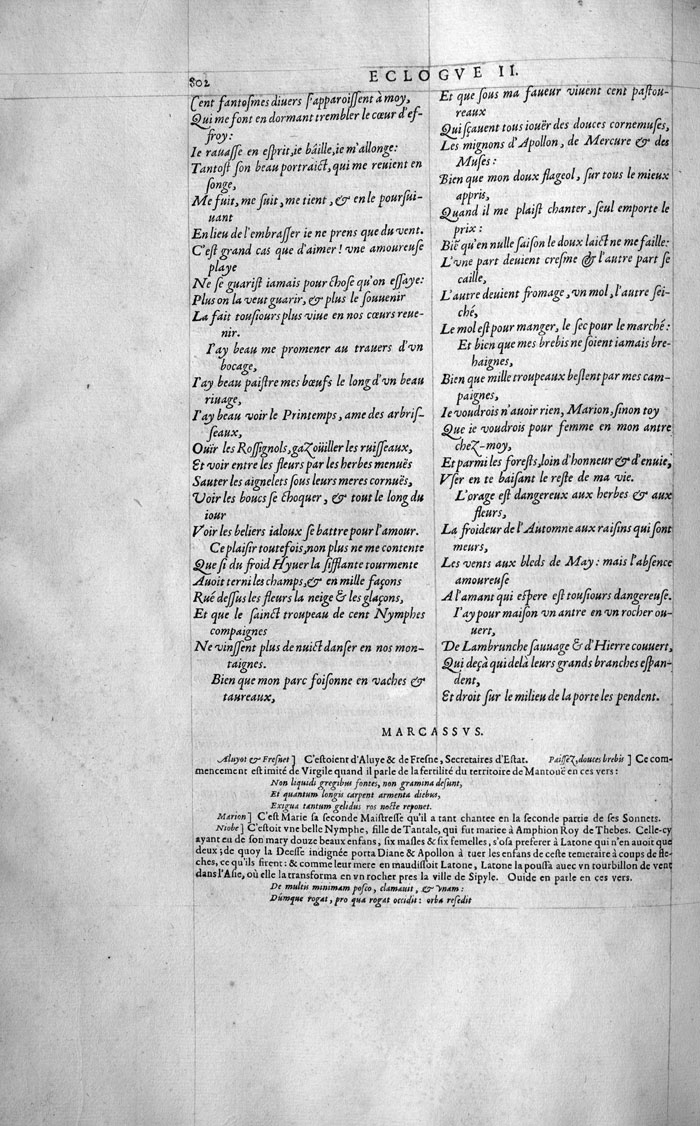 802
ECLOGVE II.
Cent fantoſmes diuers ſ'apparoiſſent à moy,
Qui me font en dormant trembler le cœur d'ef-
froy:
Ie rauaſſe en eſprit, ie bâille, ie m'allonge:
Tantoſt ſon beau portraict, qui me reuient en
ſonge,
Me fuit, me ſuit, me tient, & en le pourſui-
uant
En lieu de l'embraſſer ie ne prens que du vent.
C'eſt grand cas que d'aimer! vne amoureuſe
playe
Ne ſe guariſt iamais pour choſe qu'on eſſaye:
Plus on la veut guarir, & plus le ſouuenir
La fait touſiours plus viue en nos cœurs reue-
nir.
I'ay beau me promener au trauers d'vn
bocage,
I'ay beau paiſtre mes bœufs le long d'vn beau
riuage,
I'ay beau voir le Printemps, ame des arbriſ-
ſeaux,
Ouïr les Roſſignols, gaZoüiller les ruiſſeaux,
Et voir entre les fleurs par les herbes menuës
Sauter les aignelets ſous leurs meres cornuës,
Voir les boucs ſe choquer, & tout le long du
iour
Voir les beliers ialoux ſe battre pour l'amour.
Ce plaiſir toutefois, non plus ne me contente
Que ſi du froid Hyuer la ſifflante tourmente
Auoit terni les champs, & en mille façons
Rué deſſus les fleurs la neige & les glaçons,
Et que le ſainct troupeau de cent Nymphes
compaignes
Ne vinſſent plus de nuict danſer en nos mon-
taignes.
Bien que mon parc foiſonne en vaches &
taureaux,
Et que ſous ma faueur viuent cent paſtou-
reaux
Qui ſcauent tous iouër des douces cornemuſes,
Les mignons d'Apollon, de Mercure & des
Muſes:
Bien que mon doux flageol, ſur tous le mieux
appris,
Quand il me plaiſt chanter, ſeul emporte le
prix:
Biẽ qu'en nulle ſaiſon le doux laict ne me faille:
L'vne part deuient creſme & l'autre part ſe
caille,
L'autre deuient fromage, vn mol, l'autre ſei-
ché,
Le mol eſt pour manger, le ſec pour le marché:
Et bien que mes brebis ne ſoient iamais bre-
haignes,
Bien que mille troupeaux beſlent par mes cam-
paignes,
Ie voudrois n'auoir rien, Marion, ſinon toy
Que ie voudrois pour femme en mon antre
cheZ-moy,
Et parmi les foreſts, loin d'honneur & d'enuie,
Vſer en te baiſant le reſte de ma vie.
L'orage eſt dangereux aux herbes & aux
fleurs,
La froideur de l'Automne aux raiſins qui ſont
meurs,
Les vents aux bleds de May: mais l'abſence
amoureuſe
A l'amant qui eſpere eſt touſiours dangereuſe.
I'ay pour maiſon vn antre en vn rocher ou-
uert,
De Lambrunche ſauuage & d'Hierre couuert,
Qui deçà qui delà leurs grands branches eſpan-
dent,
Et droit ſur le milieu de la porte les pendent.
MARCASSVS.
Aluyot & Freſnet] C'eſtoient d'Aluye & de Freſne, Secretaires d'Eſtat. PaiſſeZ, douces brebis] Ce com-
mencement eſt imité de Virgile quand il parle de la fertilité du territoire de Mantouë en ces vers:
Non liquidi gregibus fontes, non gramina deſunt,
Et quantum longis carpent armenta diebus,
Exigua tantum gelidus ros nocte reponet.
Marion] C'eſt Marie ſa ſeconde Maiſtreſſe qu'il a tant chantee en la ſeconde partie de ſes Sonnets.
Niobe] C'eſtoit vne belle Nymphe, fille de Tantale, qui fut mariee à Amphion Roy de Thebes. Celle-cy
ayant eu de ſon mary douze beaux enfans, ſix maſles & ſix femelles, s'oſa preferer à Latone qui n'en auoit que
deux; de quoy la Deeſſe indignée porta Diane & Apollon à tuer les enfans de ceſte temeraire à coups de fle-
ches, ce qu'ils firent: & comme leur mere en maudiſſoit Latone, Latone la pouſſa auec vn tourbillon de vent
dans l'Aſie, où elle la transforma en vn rocher pres la ville de Sipyle. Ouide en parle en ces vers.
De multis minimam poſco, clamauit, & vnam:
Dúmque rogat, pro qua rogat occidit: orba reſedit